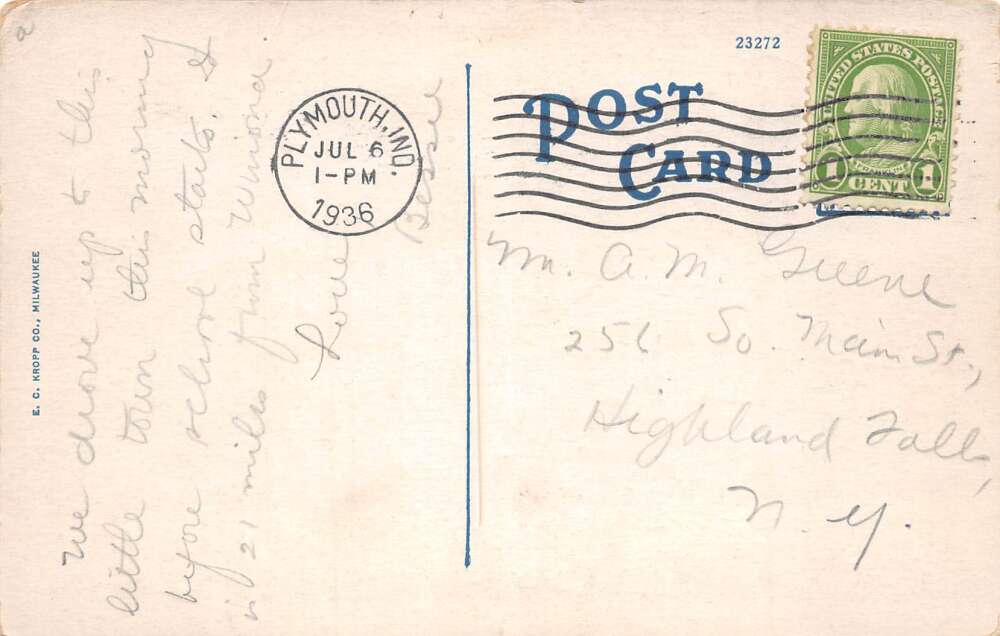 23272
POST
CARD
UNITED STATES POSTAGE
1 CENT 1
PLYMOUTH, IND.
JUL 6
1-PM
1936
We drove up to this
little town this morning
before school starts. It
is 21 miles from Winona
Love
Bessie
Mr. A. M. Greene
256 So. Main St.,
Highland Falls,
N. Y.
E. C. KROPP CO., MILWAUKEE